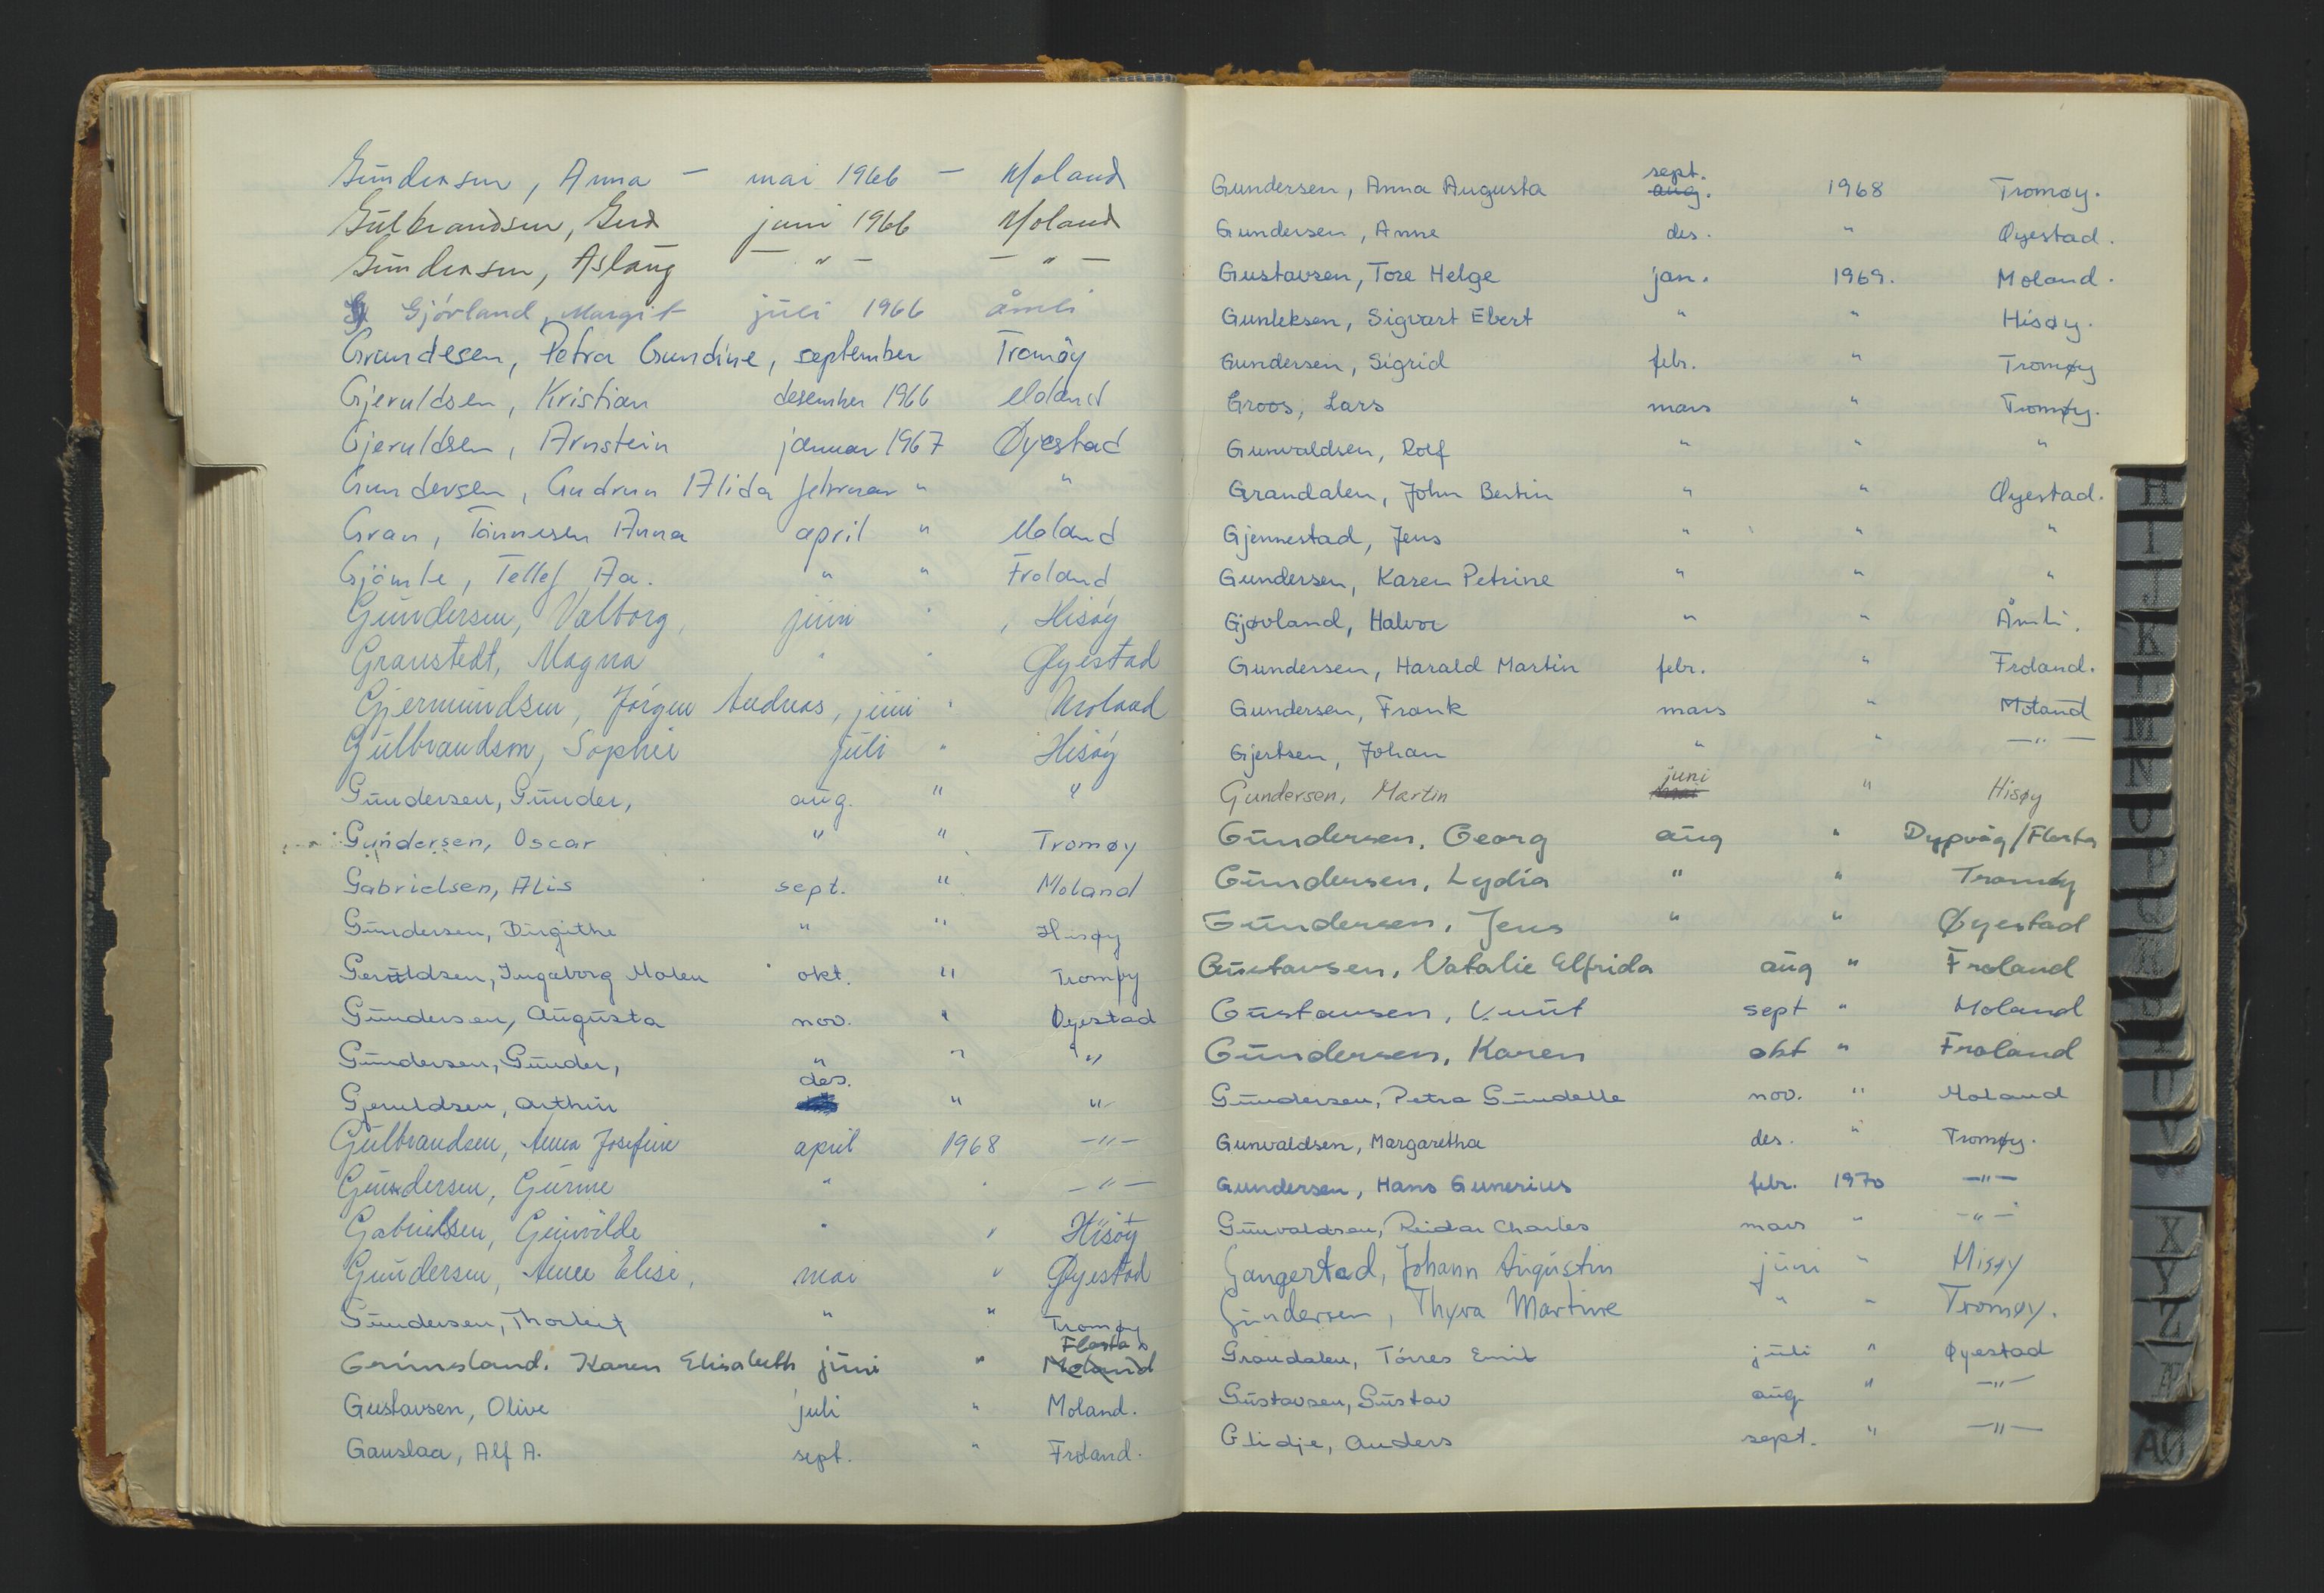 Gundersen, Anna — mai 1966 — Moland
Gulbrandsen, Gerd juni 1966 Moland
Gundersen, Aslaug — " — — " —
Gjövland, Margit juli 1966 åmli
Grundesen, Petra Gundine, september Tromöy
Gjeruldsen, Kristian desember 1966 Moland
Gjeruldsen, Arnstein januar 1967 Øyestad
Gundersen, Gudrun Alida februar " "
Gran, Tönnesen Anna april " Moland
Gjömle, Tellef Aa. " " Froland
Gundersen, Valborg, juni " , Hisöy
Granstedt, Magna " " Øyestad
Gjermundsen, Jörgen Andreas, juni " Moland
Gulbrandsen, Sophie juli " Hisöy
Gundersen, Gunder, aug. " "
Gundersen, Oscar " " Tromøy
Gabrielsen, Alis sept. " Moland
Gundersen, Birgithe " " Hisøy
Geruldsen, Ingeborg Malen okt. " Tromøy
Gundersen, Augusta nov. " Øyestad
Gundersen, Gunder, " " "
Gjeruldsen, Arthur des. " "
Gulbrandsen, Anna Josefine april 1968 —"—
Gundersen, Gurine " " —"—
Gabrielsen, Gunvilde " " Hisöy
Gundersen, Anne Elise, mai " Øyestad
Gundersen, Thorleif " " Tromøy
Flosta
Grimsland. Karen Elisabeth juni " Moland
Gustavsen, Olive juli " Moland.
Gauslaa, Alf A. sept. " Froland.
sept.
Gundersen, Anna Augusta aug. 1968 Tromøy.
Gundersen, Anne des. " Øyestad.
Gustavsen, Tore Helge jan. 1969. Moland.
Gunleksen, Sigvart Ebert " " Hisøy.
Gundersen, Sigrid febr. " Tromøy
Groos, Lars mars " Tromøy.
Gunvaldsen, Rolf " " "
Grandalen, John Bertin " " Øyestad.
Gjennestad, Jens " " "
Gundersen, Karen Petrine " " "
Gjøvland, Halvor " " Åmli.
Gundersen, Harald Martin febr. " Froland.
Gundersen, Frank mars " Moland
Gjertsen, Johan " " —"—
juni
Gundersen, Martin mai " Hisøy
Gundersen, Georg aug " Dypvåg/Flosta
Gundersen, Lydia " " Tromøy
Gundersen, Jens " " Øyestad
Gustavsen, Natalie Elfrida aug " Froland
Gustavsen, Knut sept " Moland
Gundersen, Karen okt " Froland
Gundersen, Petra Gundelle nov. " Moland
Gunvaldsen, Margaretha des. " Tromøy.
Gundersen, Hans Gunerius febr. 1970 —"—
Gunvaldsen, Reidar Charles mars " —"—
Gangertad, Johann Augustin juni " Hisøy
Gundersen, Thyra Martine " " Tromøy.
Grandalen, Tórres Emil juli " Øyestad
Gustavsen, Gustav aug " —"—
Glidje, Anders sept. " —"—
H
I
J
K
L
M
N
O
P
Q
R
U
V
X
Y
Z
Æ
AØ